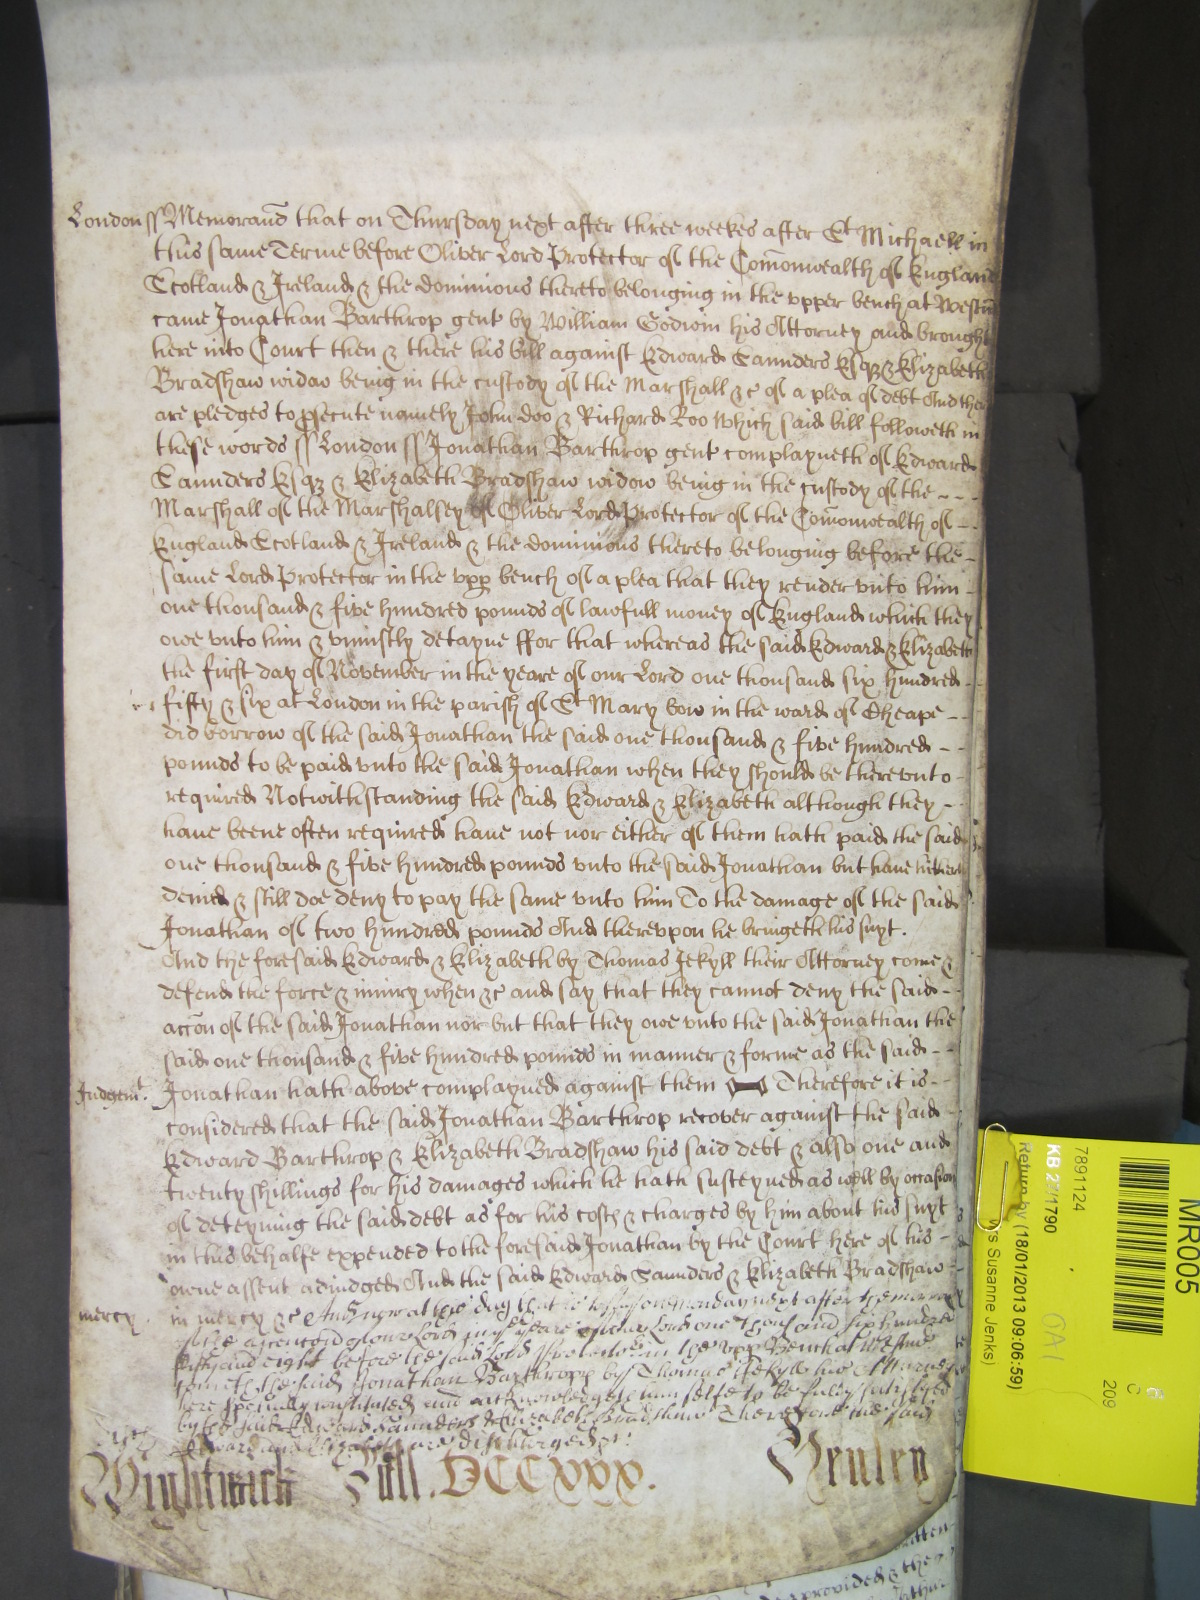 London ss Memorand that on Thursday next after three weekes after St Michaell in
this same Terme before Oliver Lord Protector of the Comonwealth of England
Scotland & Ireland & the dominions thereto belonging in the vpper bench at Westm
came Jonathan Barthrop gent by William Godwin his Attorney and brought
here into Court then & there his bill against Edward Saunders Esqz & Elizabeth
Bradshaw widow being in the custody of the Marshall &c of a plea of debt And there
are pledges to psecute namely John Doo & Richard Roo Which said bill followeth in
these words ss London ss Jonathan Barthrop gent complayneth of Edward
Saunders Esqz & Elizabeth Bradshaw widow being in the custody of the - - -
Marshall of the Marshalsey of Oliver Lord Protector of the Comonwealth of - -
England Scotland & Ireland & the dominions thereto belonging before the -
same Lord Protector in the vpp bench of a plea that they render vnto him -
one thousand & five hundred pounds of lawfull money of England which they
owe vnto him & vniustly detayne ffor that whereas the said Edward & Elizabeth
the first day of November in the yeare of our Lord one thousand six hundred -
fifty & six at London in the parish of St Mary bow in the ward of Cheape - -
did borrow of the said Jonathan the said one thousand & five hundred - -
pounds to be paid vnto the said Jonathan when they should be therevnto -
required Notwithstanding the said Edward & Elizabeth although they -
have beene often required have not nor either of them hath paid the said
one thousand & five hundred pounds vnto the said Jonathan but have hitherto
denied & still doe deny to pay the same vnto him To the damage of the said
Jonathan of two hundred pounds And therevpon he bringeth his suyt .
And the foresaid Edward & Elizabeth by Thomas Jekyll their Attorney come &
defend the force & iniury when &c and say that they cannot deny the said - -
accon of the said Jonathan nor but that they owe vnto the said Jonathan the
said one thousand & five hundred pounds in manner & forme as the said - -
Judgemt. Jonathan hath above complayned against them Therefore it is - -
considered that the said Jonathan Barthrop recover against the said
Edward Barthrop & Elizabeth Bradshaw his said debt & also one and
twenty shillings for his damages which he hath susteyned as well by occasion
of deteyning the said debt as for his costs & charges by him about his suyt
in this behalfe expended to the foresaid Jonathan by the Court here of his -
owne assent adiudged And the said Edward Saunders & Elizabeth Bradshaw
mercy. in mercy &c And now at this day that is to say on Monday next after the morrow
of the ascension of our Lord in yeare of our Lord one Thousand six hundred
fifty and eight before the said Lord Protector in the vpp Bench at Westmr
cometh the said Jonathan Barthropp by Thomas Jekyll his Attorney
here specially constituted and acknowledgeth himselfe to be fully satisfyed
by the said Edward Saunders & Elizabeth Bradshaw Therefore the said
Edward and Elizabeth are discharged &c
Wightwick Roll. DCCxxx. Henley
MR005
7891124
KB 27/1790
Return by (18/01/2013 09:06:59)
Susanne Jenks)
209
C